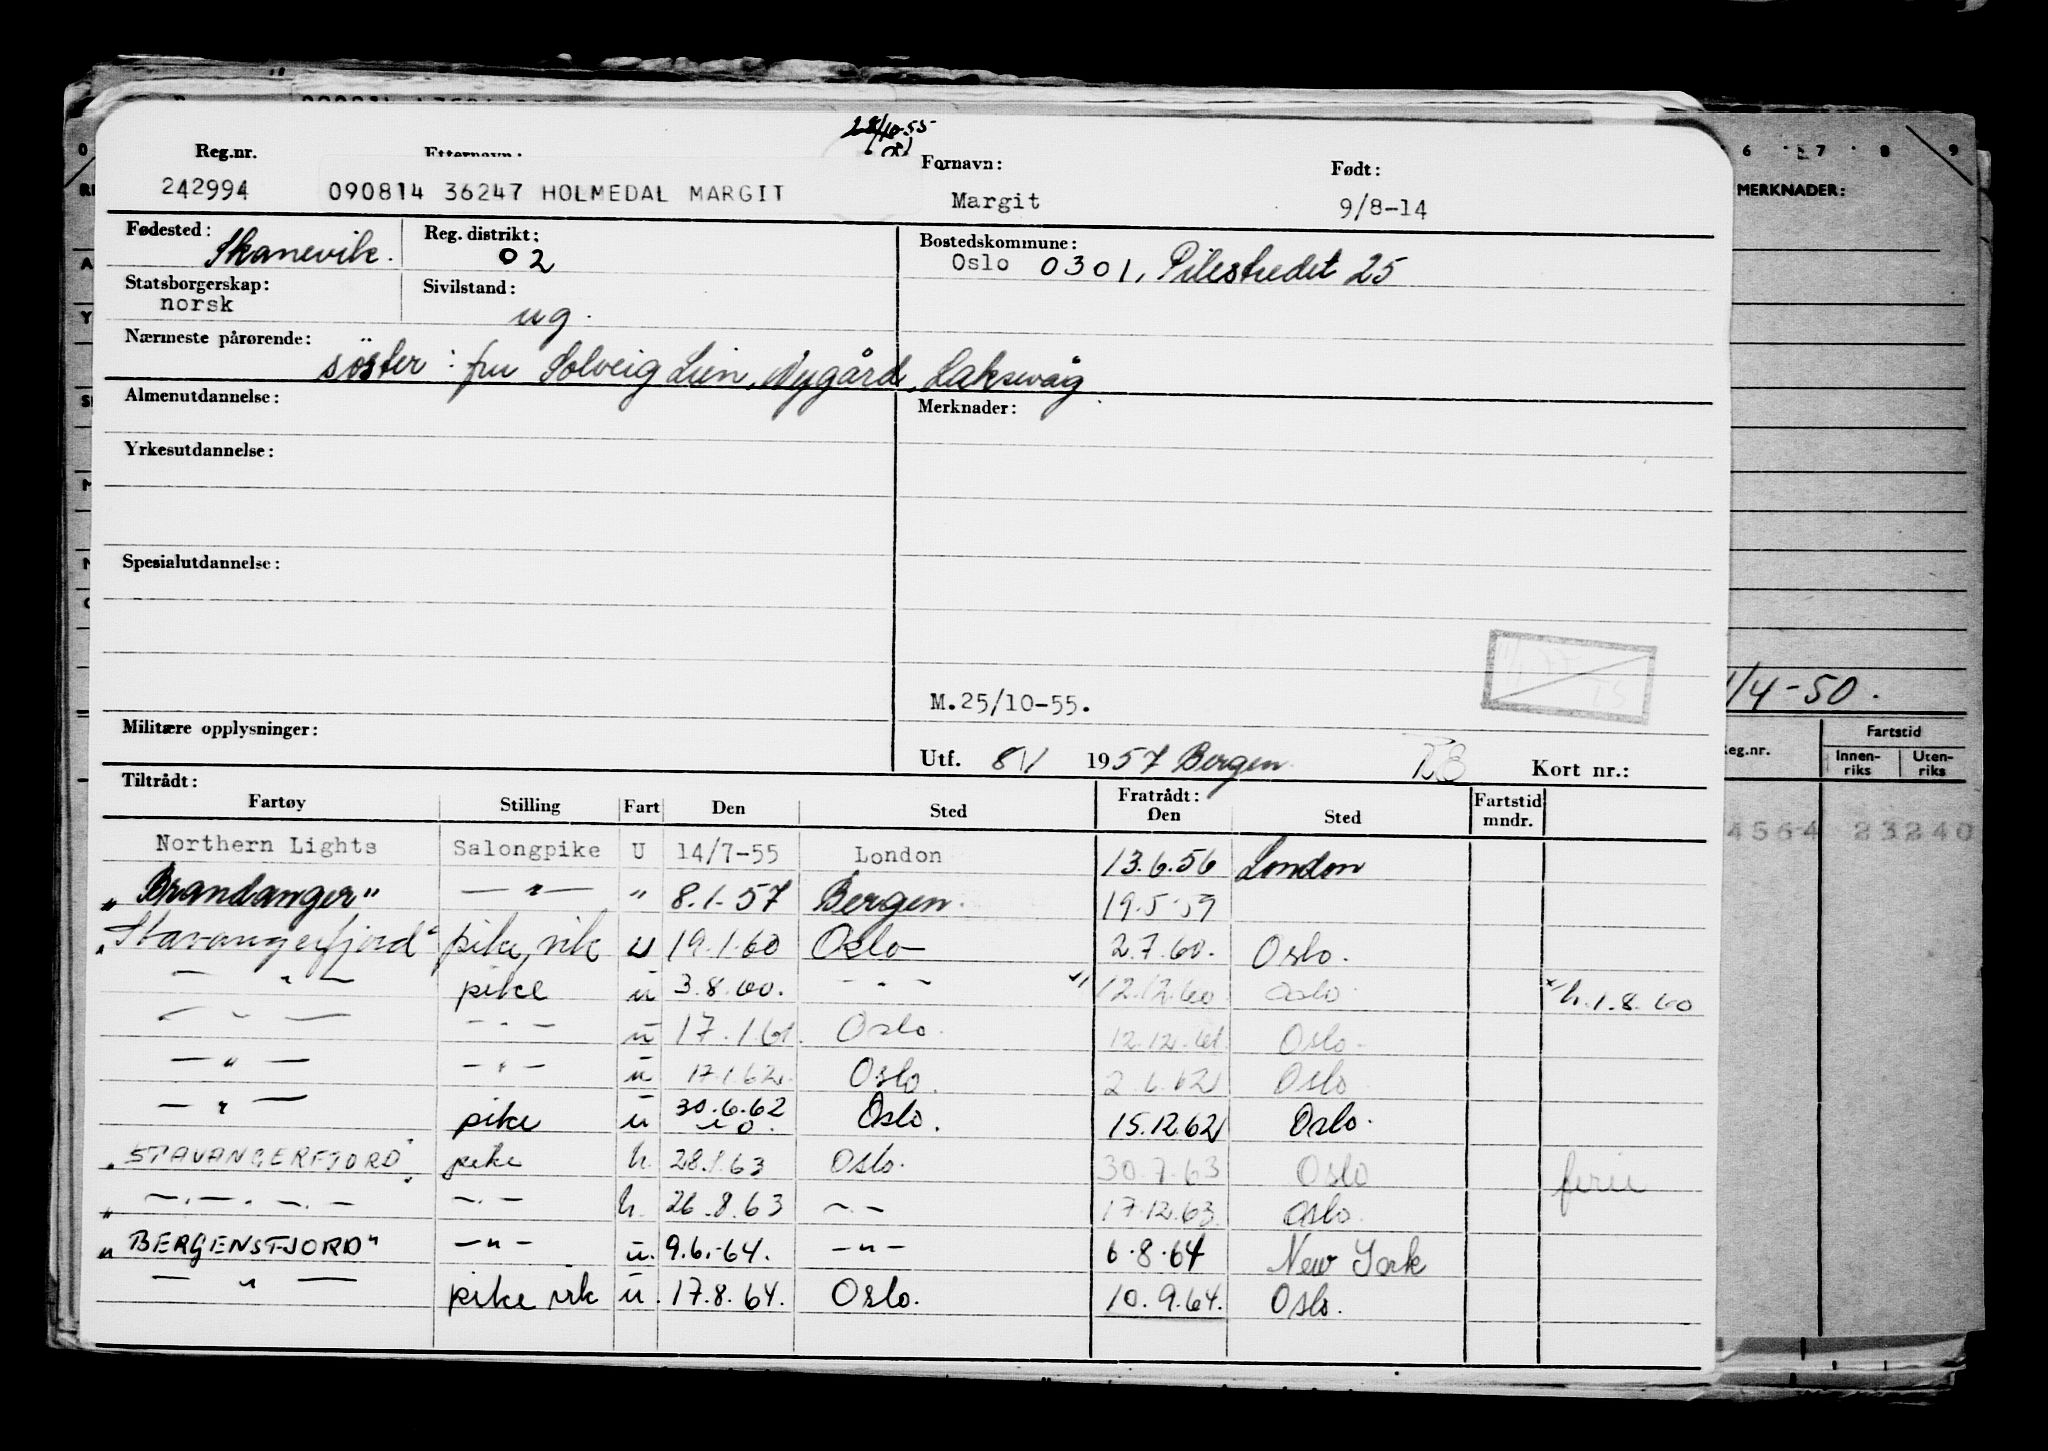 28/10-55
Reg.nr. Etternavn: Fornavn: Født:
242994 090814 36247 HOLMEDAL MARGIT Margit 9/8-14
Fødested: Skanevik. Reg. distrikt: 02 Bostedskommune: Oslo 0301, Pilestredet 25
Statsborgerskap: norsk Sivilstand: ug.
Nærmeste pårørende: söster: fru Solveig Lien, Nygård, Laksevåg
Almenutdannelse: Merknader:
Yrkesutdannelse:
Spesialutdannelse:
M.25/10-55.
Militære opplysninger:
Utf. 8/1 1957 Bergen Kort nr.:
Tiltrådt: Fratrådt: Fartstid
Fartøy Stilling Fart Den Sted Den Sted mndr.
Northern Lights Salongpike U 14/7-55 London 13.6.56 London
"Brandanger" — " — " 8.1.57 Bergen. 19.5.59
"Stavangerfjord" pike, vik u 19.1.60 Oslo 2.7.60. Oslo.
— " — pike u 3.8.60. — " — 12.12.60 Oslo h.1.8.60
— " — — " — u 17.1.61. Oslo. 12.12.61 Oslo.
— " — — " — u 17.1.62. Oslo. 2.6.62 Oslo
— " — pike u 30.6.62 Oslo. 15.12.62 Oslo.
"STAVANGERFJORD" pike h. 28.1.63 Oslo. 30.7.63 Oslo ferie
" — . — . — . — — . — h. 26.8.63 — . — 17.12.63 Oslo.
"BERGENSFJORD" — " — u. 9.6.64. — " — 6.8.64 New York
— " — pike vik u. 17.8.64. Oslo. 10.9.64. Oslo.
6 7 8 9
MERKNADER:
/4-50.
eg.nr. Fartstid
Innen-riks Uten-riks
4564 23240